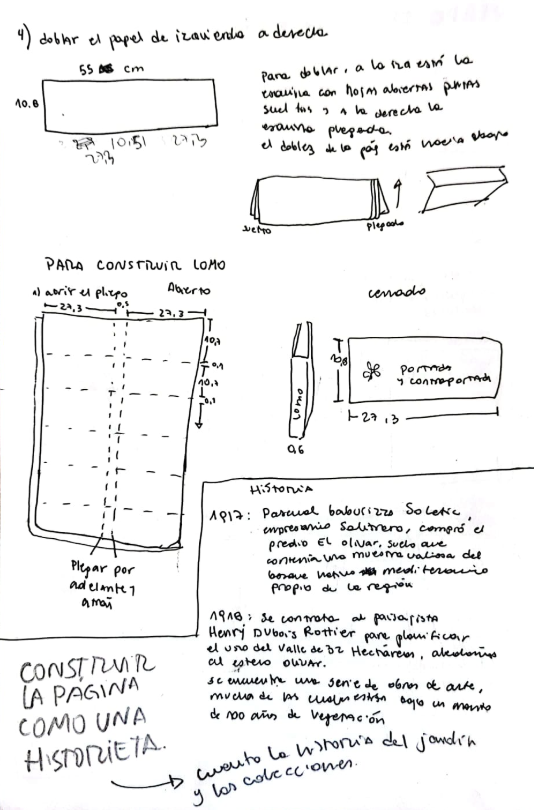 4) doblar el papel de izquierda a derecha
55 cm
10.8
27,3
10,51
27,3
Para doblar, a la iza está la
esquina con hojas abiertas puntas
sueltas y a la derecha la
esquina plegada.
el doblez de la pág está hacia abajo
suelto
plegado
PARA CONSTRUIR LOMO
1) abrir el pliego
Abierto
27,3
0,5
27,3
10,7
0,1
10,7
0,1
Plegar por
adelante y
atrás
cerrado
lomo
0,6
10,8
PORTADA
y contraportada
27,3
HISTORIA
1917: Pascual baburizza Soletic,
empresario Salitrero, compró el
predio El olivar, suelo que
contenía una muestra valiosa del
bosque nativo mediterraneo
propio de la región
1918: se contrata al paisajista
Henry Dubois Rottier para planificar
el uso del Valle de 32 Hectáreas, aledañas
al estero olivar.
se encuentra una serie de obras de arte,
mucha de las cuales están bajo un manto
de 100 años de vegetación
CONSTRUIR
LA PAGINA
COMO UNA
HISTORIETA.
cuento la historia del jardín
y las colecciones.